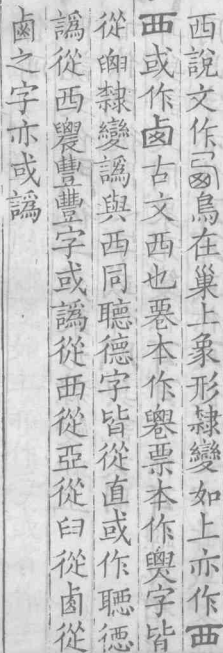 西說文作㢴鳥在巢上象形隸變如上亦作覀
覀或作卥古文西也䙲本作䙴票本作㶾字皆
從囟隸變譌與西同聽德字皆從直或作聴徳
譌從西釁豐豐字或譌從西從亞從臼從卥從
鹵之字亦或譌